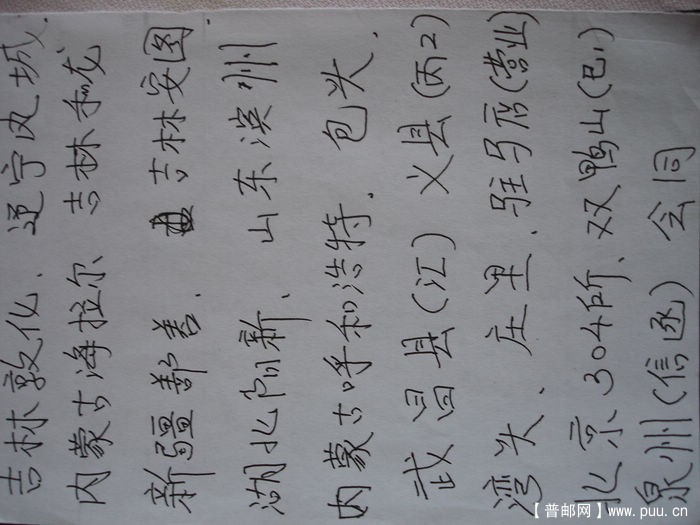 吉林敦化. 辽宁凤城.
内蒙古海拉尔 吉林和龙
新疆鄯善. 吉林安图
湖北阳新. 山东滨州
内蒙古呼和浩特. 包头.
武 温县(江) 义县(丙2)
湾头. 庄里. 驻马店(营业)
北京304所. 双鸭山(巴1)
泉州(信函) 会同
【普邮网】www.puu.cn